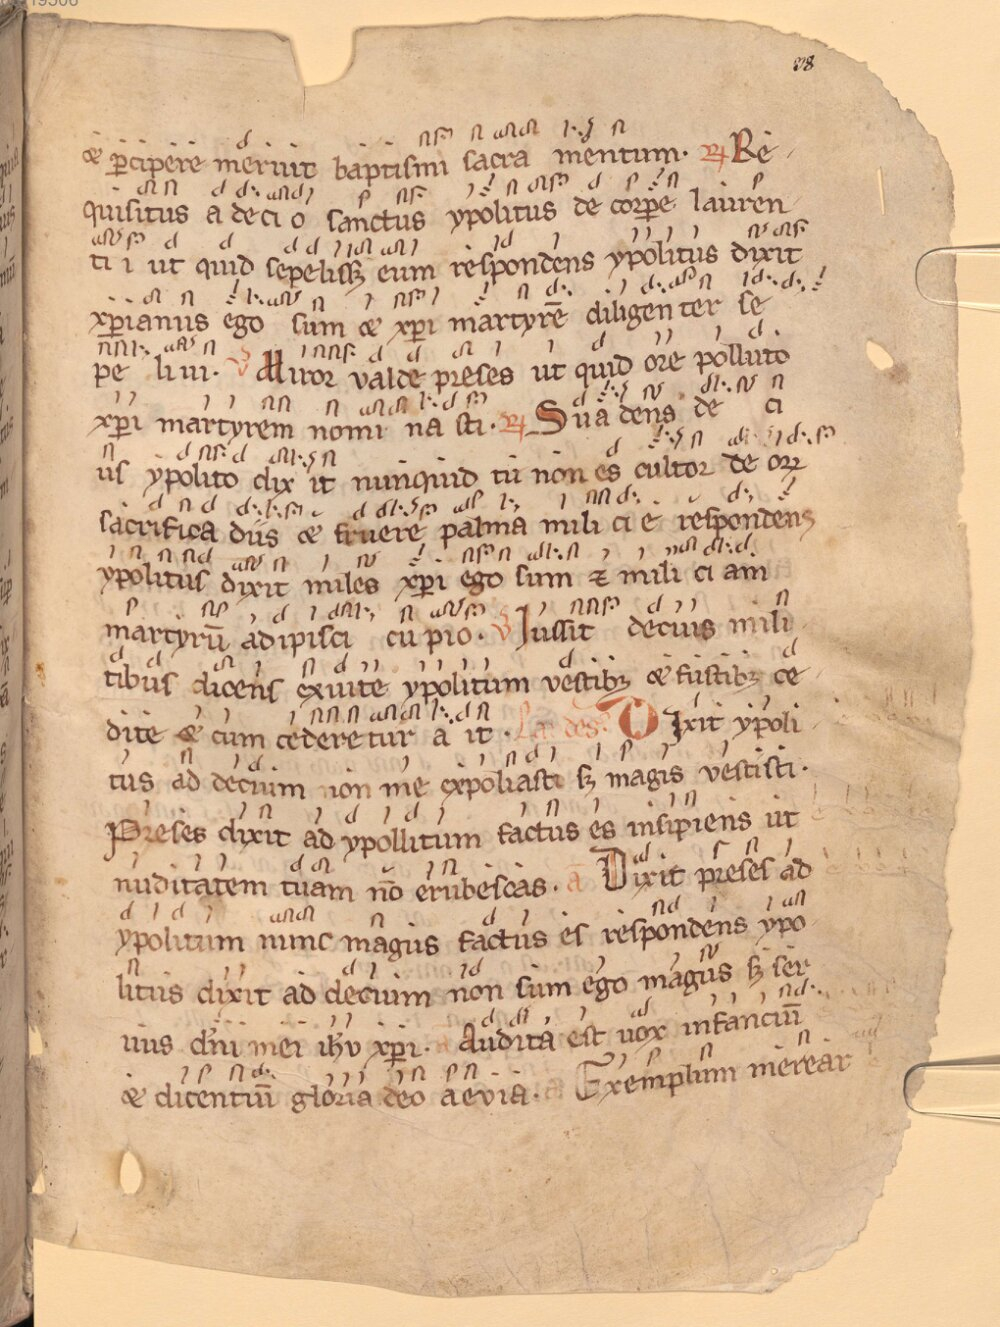 98
& ꝑcipere meruit baptismi sacra mentum. ℟ Re
quisitus a deci o sanctus ypolitus de corꝑe lauren
ti i ut quid sepelissꝫ eum respondens ypolitus dixit
xp̄ianus ego sum & xp̄i martyrē diligen ter se
pe liui. ℣ Miror valde preses ut quid ore polluto
xp̄i martyrem nomi na sti. ℟ Sua dens de ci
us ypolito dix it nunquid tu non es cultor de oꝝ
sacrifica diis & fruere palma mili ci e respondens
ypolitus dixit miles xp̄i ego sum ⁊ mili ci am
martyrū adipisci cu pio. ℣ Iussit decius mili
tibus dicens exuite ypolitum vestibꝫ & fustibꝫ ce
dite & cum cederetur a it. La des. DIxit ypoli
tus ad decium non me expoliasti sꝫ magis vestisti.
Preses dixit ad ypollitum factus es insipiens ut
nuditatem tuam nō erubescas. a Dixit preses ad
ypolitum nunc magus factus es respondens ypo
litus dixit ad decium non sum ego magus sꝫ ser
uus dn̄i mei ihū xp̄i. Audita est uox infanciū
& dicentiū gloria deo aevia. Exemplum merear